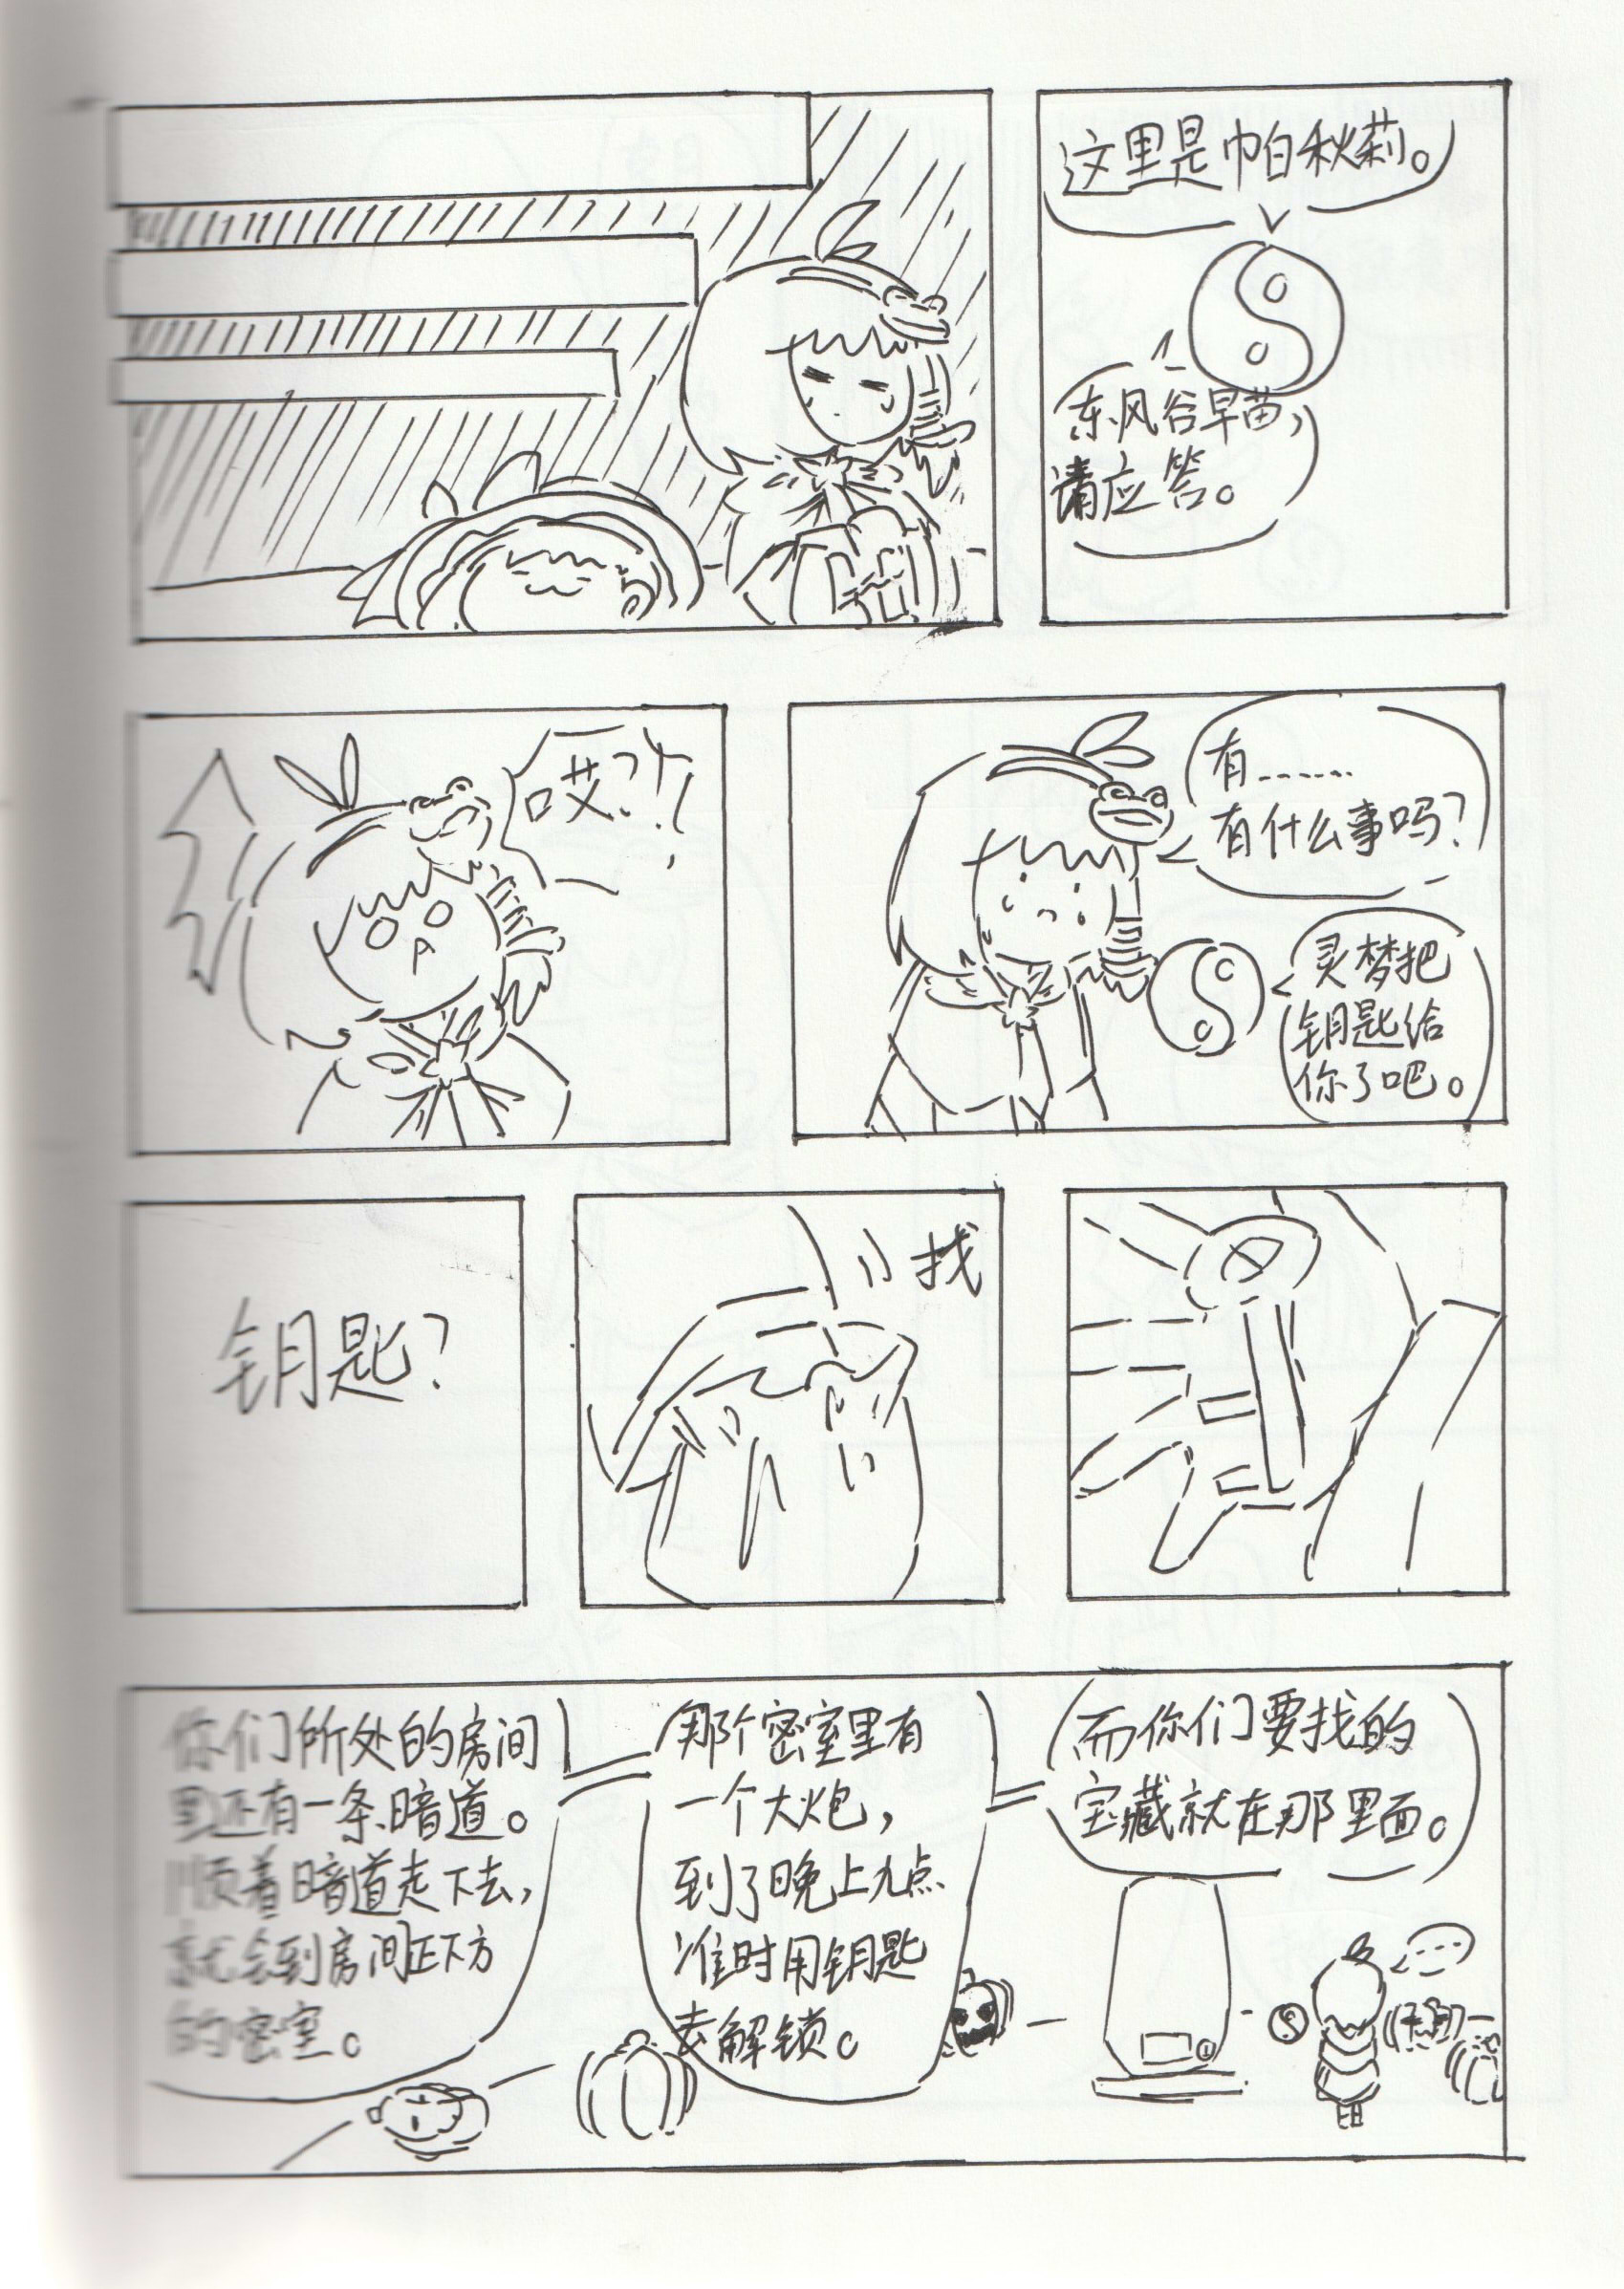 这里是帕秋莉。
东风谷早苗，
请应答。
哎？！
有……
有什么事吗？
灵梦把
钥匙给
你了吧。
钥匙？
找
你们所处的房间
里还有一条暗道。
顺着暗道走下去，
就会到房间正下方
的密室。
那个密室里有
一个大炮，
到了晚上九点
准时用钥匙
去解锁。
而你们要找的
宝藏就在那里面。
……